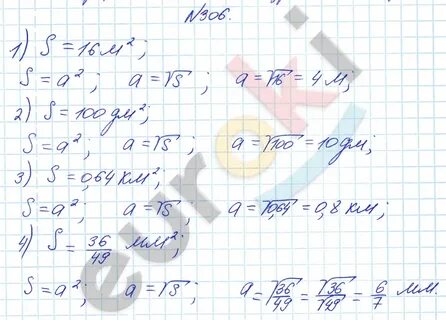 №306.
1) S = 16 м²;
S = a²; a = √S; a = √16 = 4 м;
2) S = 100 дм²;
S = a²; a = √S; a = √100 = 10 дм;
3) S = 0,64 км²;
S = a²; a = √S; a = √0,64 = 0,8 км;
4) S = 36/49 мм²;
S = a²; a = √S; a = √36/49 = √36/√49 = 6/7 мм.
euroki